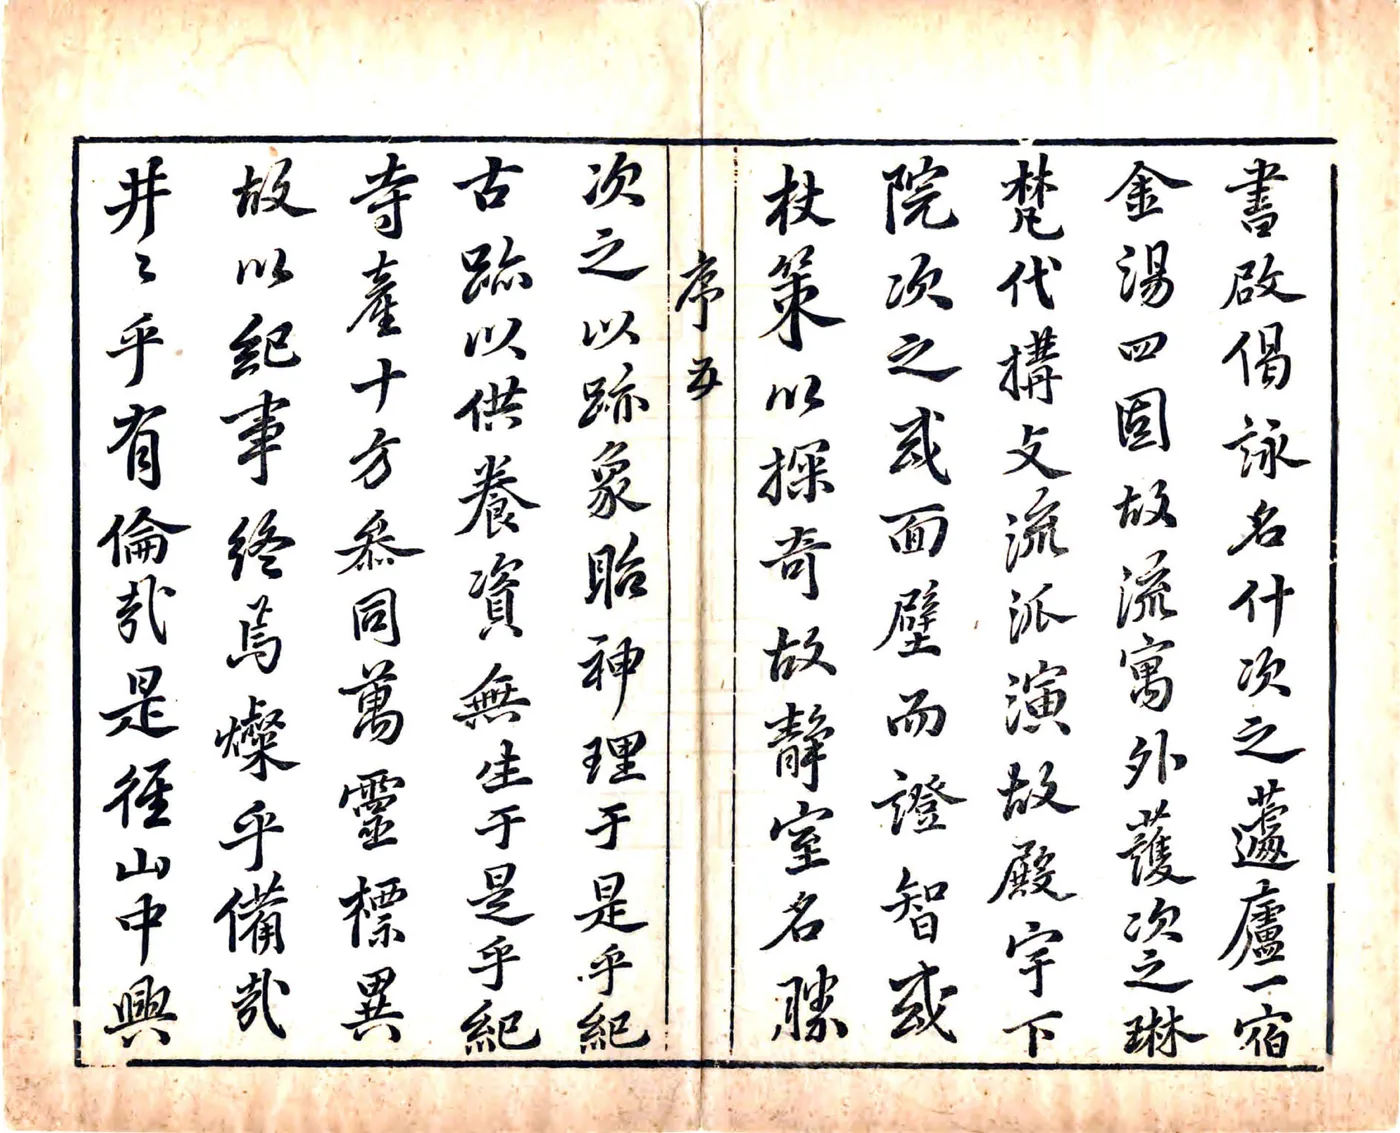 書啟偈詠名什次之蘧廬一宿
金湯四固故流寓外護次之琳
梵代構支流派演故殿宇下
院次之或面壁而證智或
杖策以探奇故靜室名勝
序五
次之以跡象貽神理于是乎紀
古跡以供養資無生于是乎紀
寺產十方叅同萬靈標異
故以紀事終焉燦乎備哉
井〻乎有倫哉是徑山中興